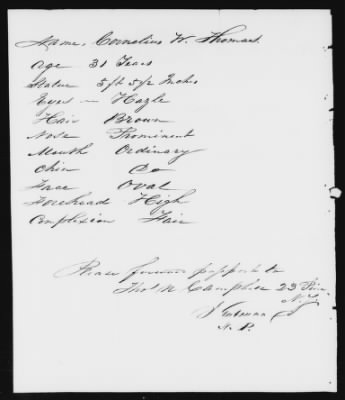 Name, Cornelius W. Thomas.
Age 31 Years
Stature 5 ft 5 1/2 Inches
Eyes - Hazle
Hair Brown
Nose Prominent
Mouth Ordinary
Chin Do
Face Oval
Forehead High
Complexion Fair
Please forward passport to
Thos N Camphee 23 Pine
N.Y.
N. P.